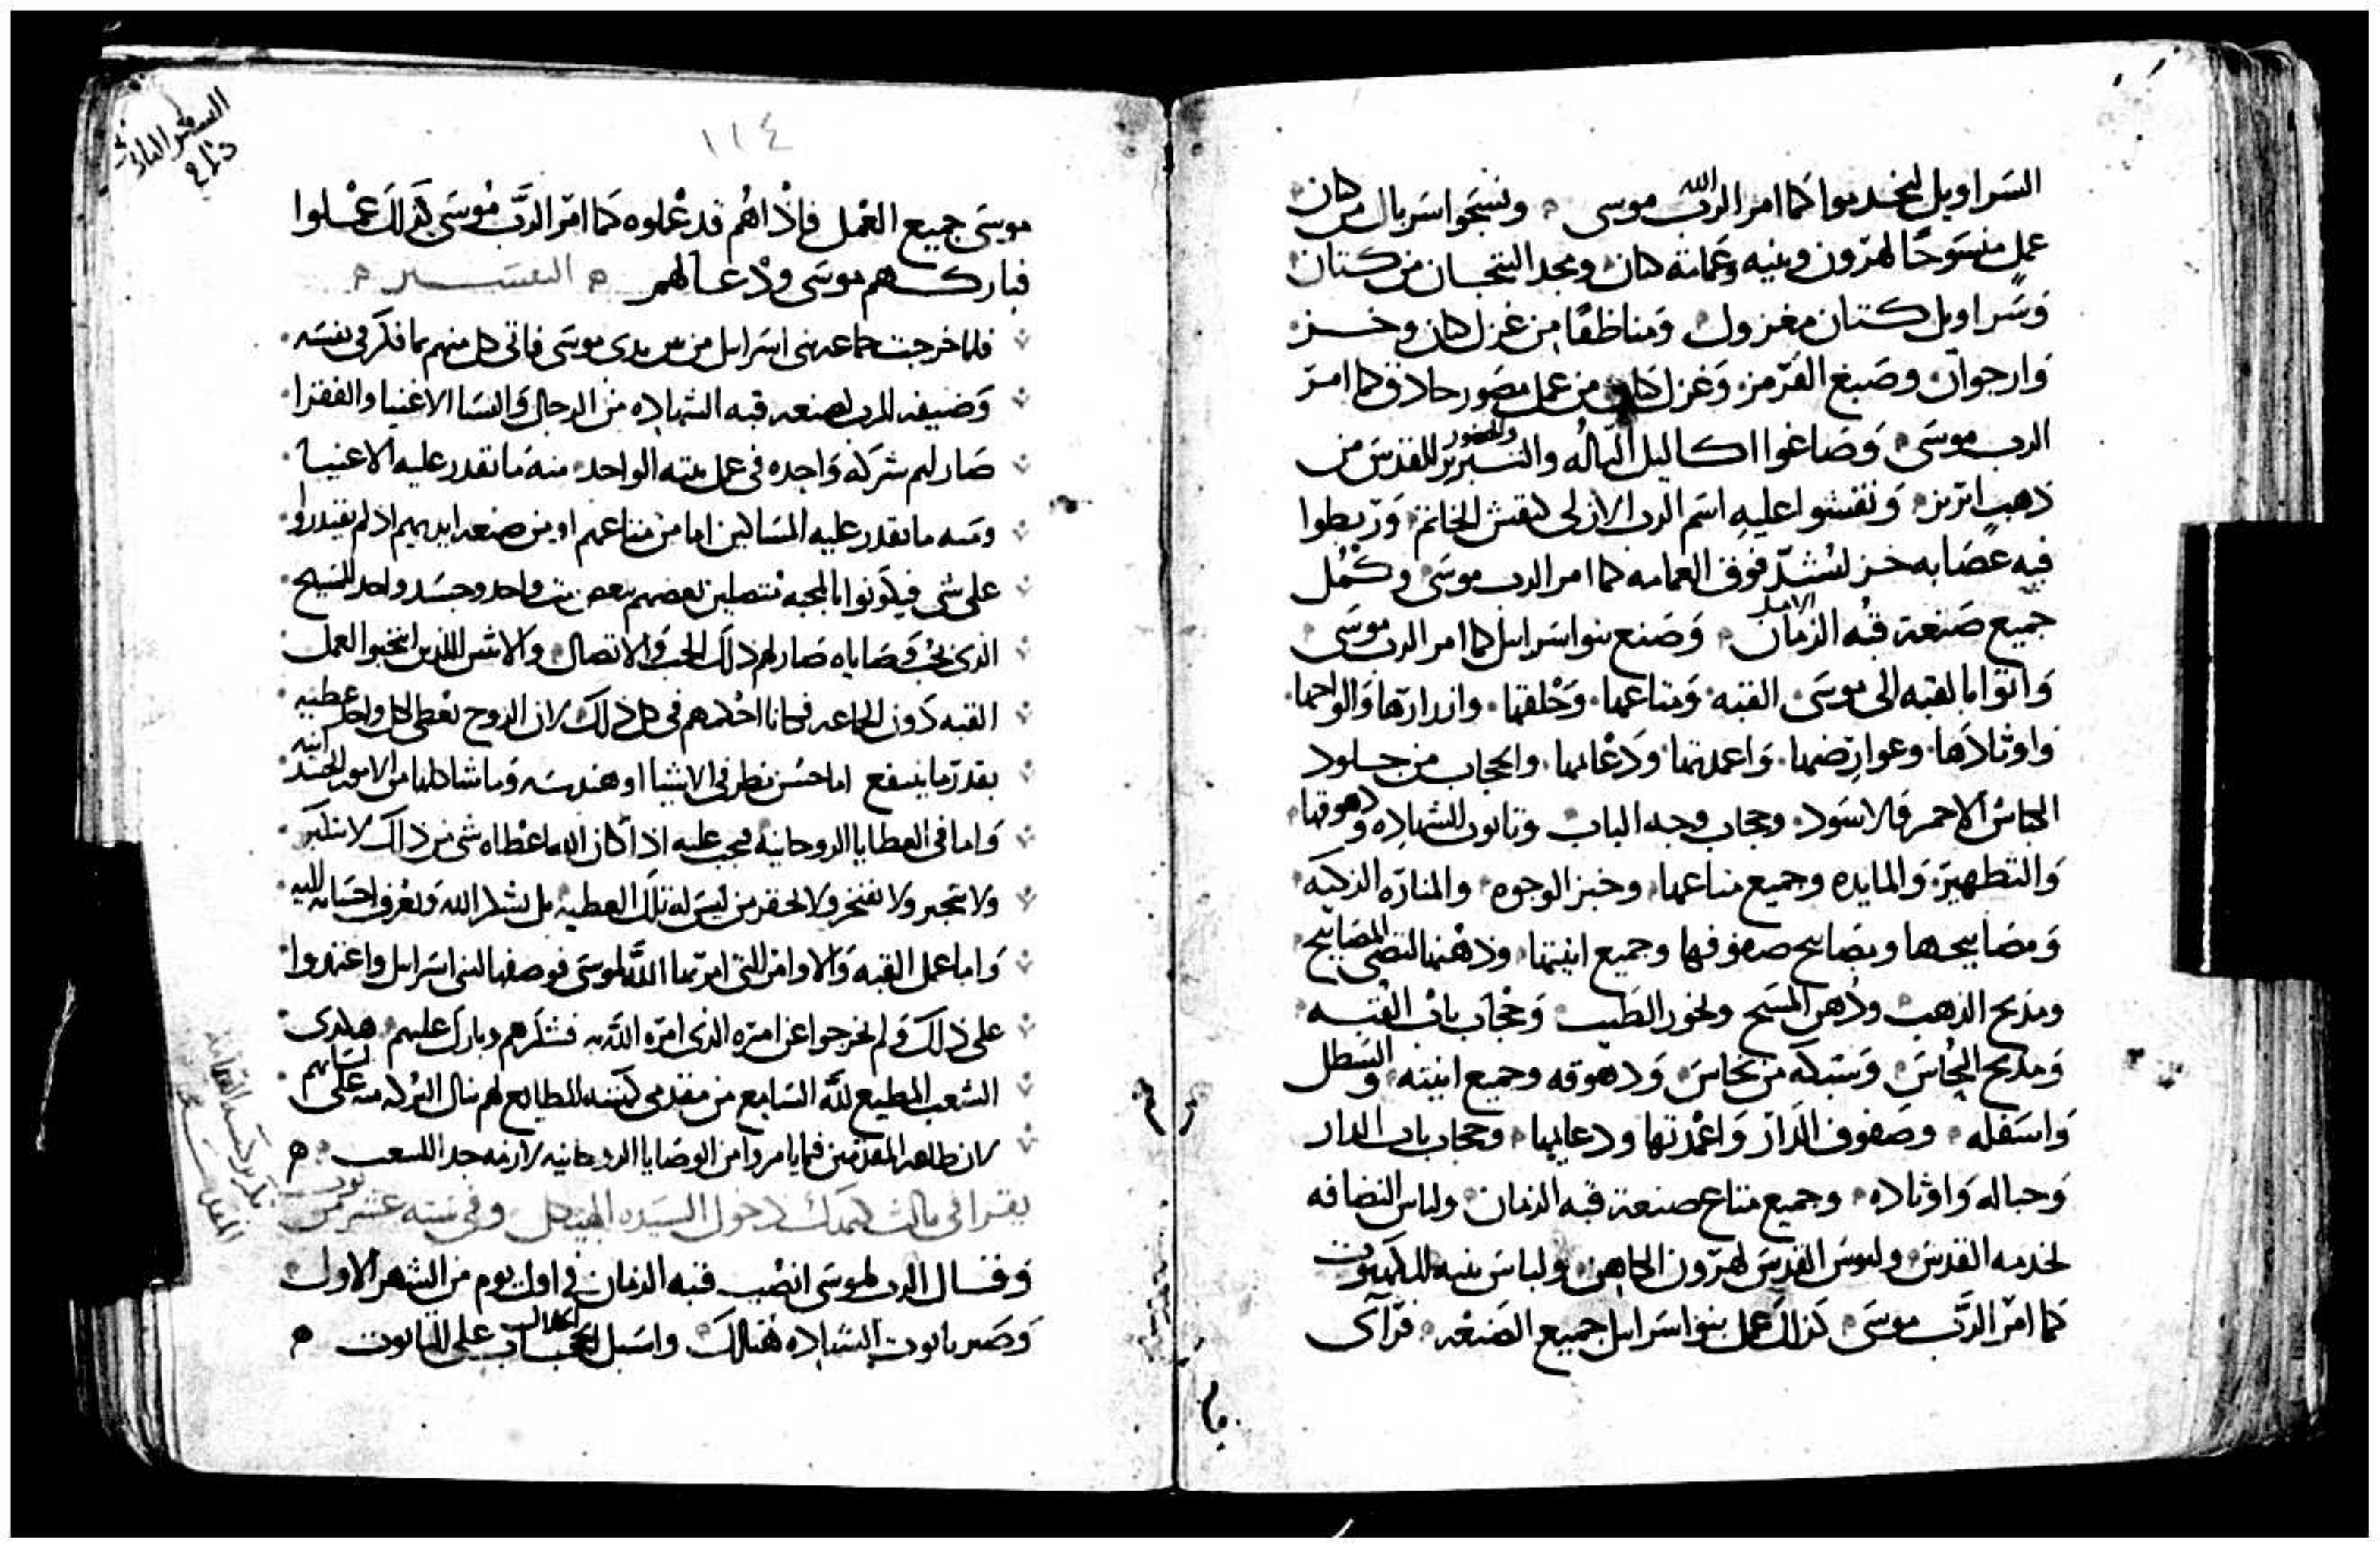 السراويل ليخدموا كما امر الرب الله موسى ونسجوا سربال من كان
عمل منسوجًا لهرون وبنيه وعمامة كان ومجد التيجان من كتان
وسراويل كتان مغزول ومناطقًا من غزل كان وخز
وارجوان وصبغ القرمز وغزل كان من عمل مصور حاذق كما امر
الرب موسى وصاغوا اكاليل للقدس من
ذهب ابريز ونقشوا عليه اسم الرب الازلى كنقش الخاتم وربطوا
فيه عصابه خز لتشد فوق العمامه كما امر الرب موسى وكمل
جميع صنعة قبه الزمان وصنع بنوا اسرايل كما امر الرب موسى
واتوا بالقبه الى موسى القبه ومتاعها وحلقها وازرارها والواحها
واوتادها وعوارضها واعمدتها ودعايمها والحجاب من جلود
الكباش الاحمر والاسود وحجاب وجه الباب وتابوت الشهاده ودهوقها
والتطهير والمايده وجميع متاعها وخبز الوجوه والمناره الزكيه
ومصابيحها ومصابيح صفوفها وجميع انيتها ودهنها لتضى المصابيح
ومذبح الذهب ودهن المسح وبخور الطيب وحجاب باب القبه
ومذبح النحاس وشبكه من نحاس ودهوقه وجميع انيته والسطل
واسفله وصفوف الدار واعمدتها ودعايمها وحجاب باب الدار
وحباله واوتاده وجميع متاع صنعة قبه الزمان ولباس النضافه
لخدمه القدس ولبوس القدس لهرون الكاهن ولباس بنيه للكهنوت
كما امر الرب موسى كذلك عمل بنوا اسرايل جميع الصنعه فرآى
السفر الثانى
١١٤
موسى جميع العمل فاذا هم قد عملوه كما امر الرب موسى كذلك عملوا
فباركهم موسى ودعا لهم التفسير
فلما خرجت جماعه بنى اسرايل من بين يدى موسى فاتى كل منهم بما فكر فى نفسه
وضيفه للرب لصنعه قبه الشهاده من الرجال والنسا الاغنيا والفقرا
صار لهم شركه واحده فى عمل بيته الواحد منه ما تقدر عليه الاغنيا
ومنه ما تقدر عليه المساكين اما من متاعهم او من صنعه ايديهم اذ لم يقتدروا
على شى فيكونوا بالمحبه متصلين بعضهم ببعض بيت واحد وجسد واحد للمسيح
الذى يحب وصاياه صار لهم ذلك الحب والاتصال والاثنين اللذين انتخبوا لعمل
القبه دون الجماعه فكانا احكمهم فى كل ذلك لان الروح تعطى لكل واحد عطيه
بقدر ما ينتفع اما حسن نظر فى الاشيا او هندسه وما شاكلها من الامور الجسدانيه
واما فى العطايا الروحانيه فيجب عليه اذا كان الله اعطاه شى من ذلك لا يتكبر
ولا يتجبر ولا يفتخر ولا يحقر من ليس له تلك العطيه بل يشكر الله ويعرف احسانه اليه
واما عمل القبه والاوامر التى امر بها الله لموسى فوصفها لبنى اسرايل واعتمدوا
على ذلك ولم يخرجوا عن امره الذى امره الله به فشكرهم وبارك عليهم هكذى
الشعب المطيع لله السامع من مقدمى كنيسته الطايع لهم ينال البركه منه على
لان طاعه المقدمين فيما يامروا من الوصايا الروحانيه لازمه جدا للشعب
يقرا فى ثالث كيهك دخول السيده الهيكل وفى سته عشر من توت
وقال الرب لموسى انصب قبه الزمان فى اول يوم من الشهر الاول
وصير تابوت الشهاده هناك واسبل الحجاب على التابوت